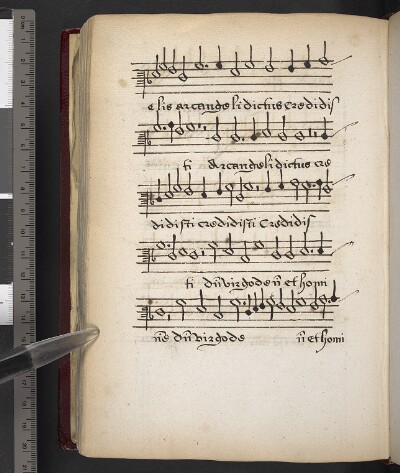 elis arcangeli dictus credidis
ti arcangeli dictus cre
didisti credidisti Credidis
ti dũ virgo de ũ et homi
nẽ dũ virgo de ũ et homi